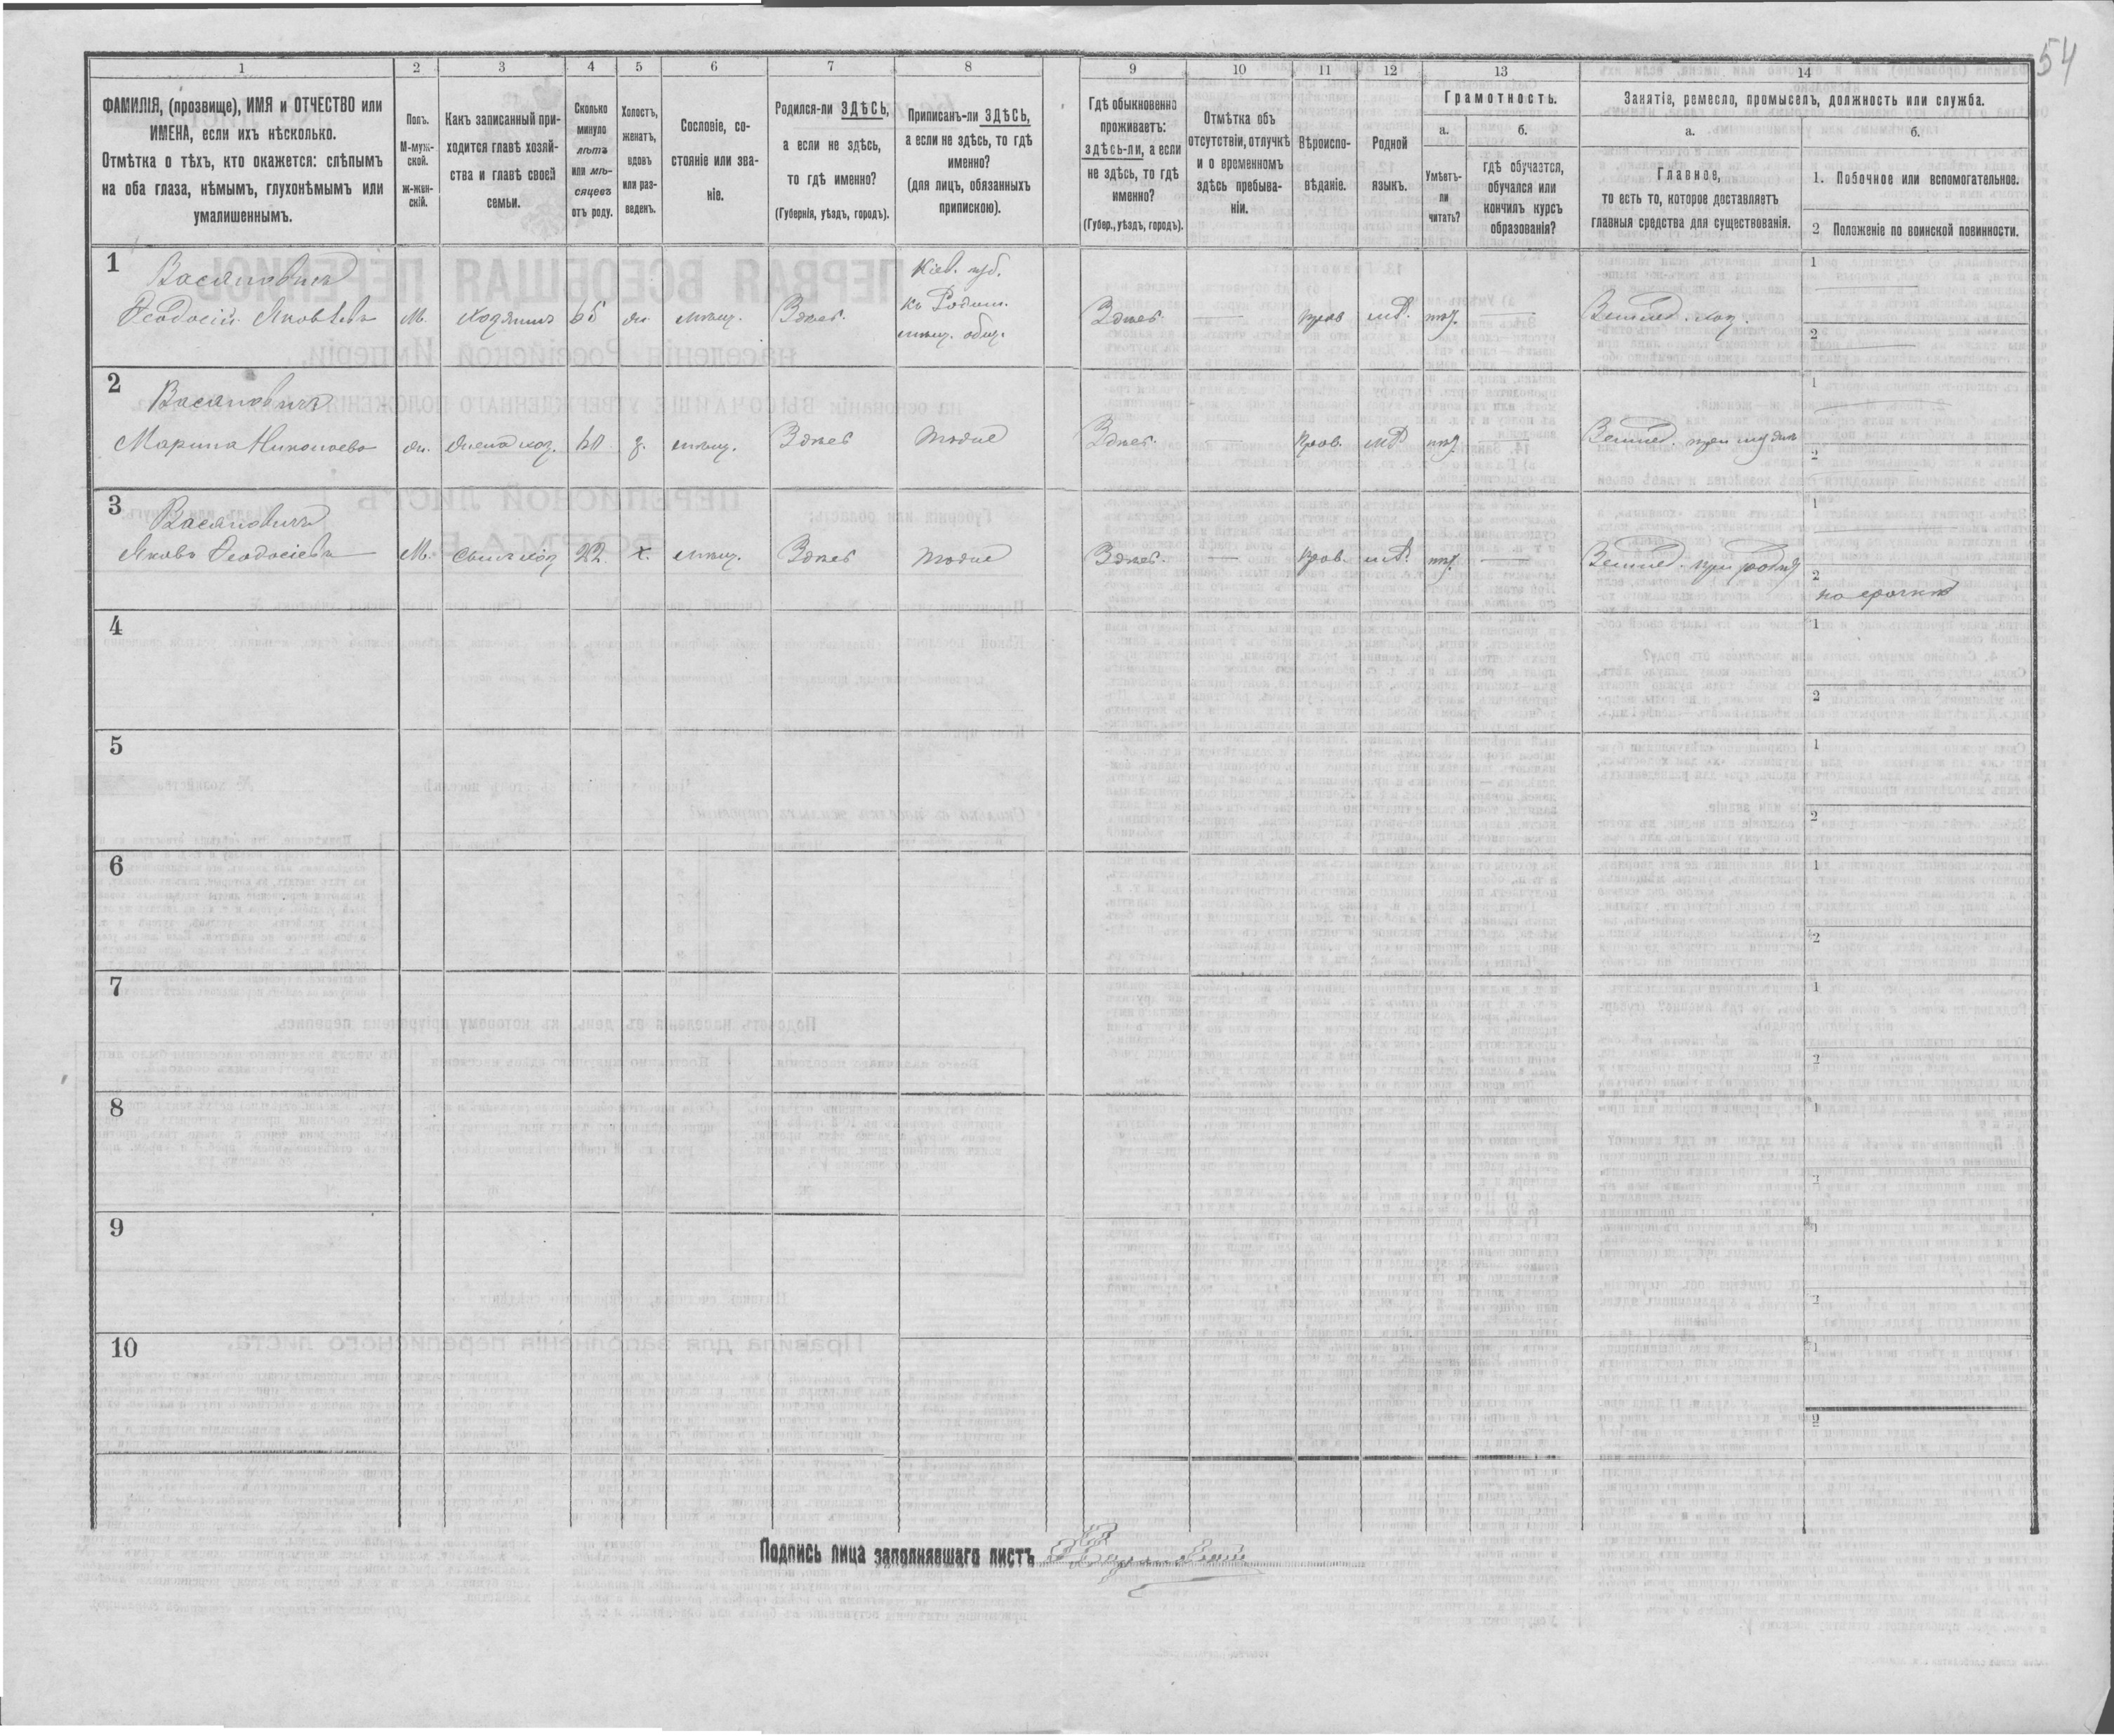 54
1 2 3 4 5 6 7 8 9 10 11 12 13 14
ФАМИЛІЯ, (прозвище), ИМЯ и ОТЧЕСТВО или
ИМЕНА, если ихъ нѣсколько.
Отмѣтка о тѣхъ, кто окажется: слѣпымъ
на оба глаза, нѣмымъ, глухонѣмымъ или
умалишеннымъ.
Полъ.
М-муж-
ской.
ж-жен-
скій.
Какъ записанный при-
ходится главѣ хозяй-
ства и главѣ своей
семьи.
Сколько
минуло
лѣтъ
или мѣ-
сяцевъ
отъ роду.
Холостъ,
женатъ,
вдовъ
или раз-
веденъ.
Сословіе, со-
стояніе или зва-
ніе.
Родился-ли ЗДѢСЬ,
а если не здѣсь,
то гдѣ именно?
(Губернія, уѣздъ, городъ).
Приписанъ-ли ЗДѢСЬ,
а если не здѣсь, то гдѣ
именно?
(для лицъ, обязанныхъ
припискою).
Гдѣ обыкновенно
проживаетъ:
здѣсь-ли, а если
не здѣсь, то гдѣ
именно?
(Губер., уѣздъ, городъ).
Отмѣтка объ
отсутствіи, отлучкѣ
и о временномъ
здѣсь пребыва-
ніи.
Вѣроиспо-
вѣданіе.
Родной
языкъ.
Грамотность.
а.
Умѣетъ-
ли
читать?
б.
гдѣ обучается,
обучался или
кончилъ курсъ
образованія?
Занятіе, ремесло, промыселъ, должность или служба.
а.
Главное,
то есть то, которое доставляетъ
главныя средства для существованія.
б.
1. Побочное или вспомогательное.
2 Положеніе по воинской повинности.
1
Васяновичъ
Феодосій Яковлевъ
М.
Хозяинъ
65
жн.
мѣщ.
Здѣсь.
Кіев. губ.
къ Родом.
мѣщ. общ.
Здѣсь.
прав
нѣт.
Землед. хоз.
1
2
2
Васяновичъ
Марина Николаева
жн.
Жена хоз.
60
з.
мѣщ.
Здѣсь
тоже
Здѣсь.
прав.
нѣт.
Землед. при мужѣ
1
2
3
Васяновичъ
Яковъ Феодосіевъ
М.
Сынъ хоз
22
х.
мѣщ.
Здѣсь
тоже
Здѣсь.
прав.
нѣт.
Землед. при родит.
1
2
4
1
2
5
1
2
6
1
2
7
1
2
8
1
2
9
1
2
10
1
2
Подпись лица заполнявшаго листъ